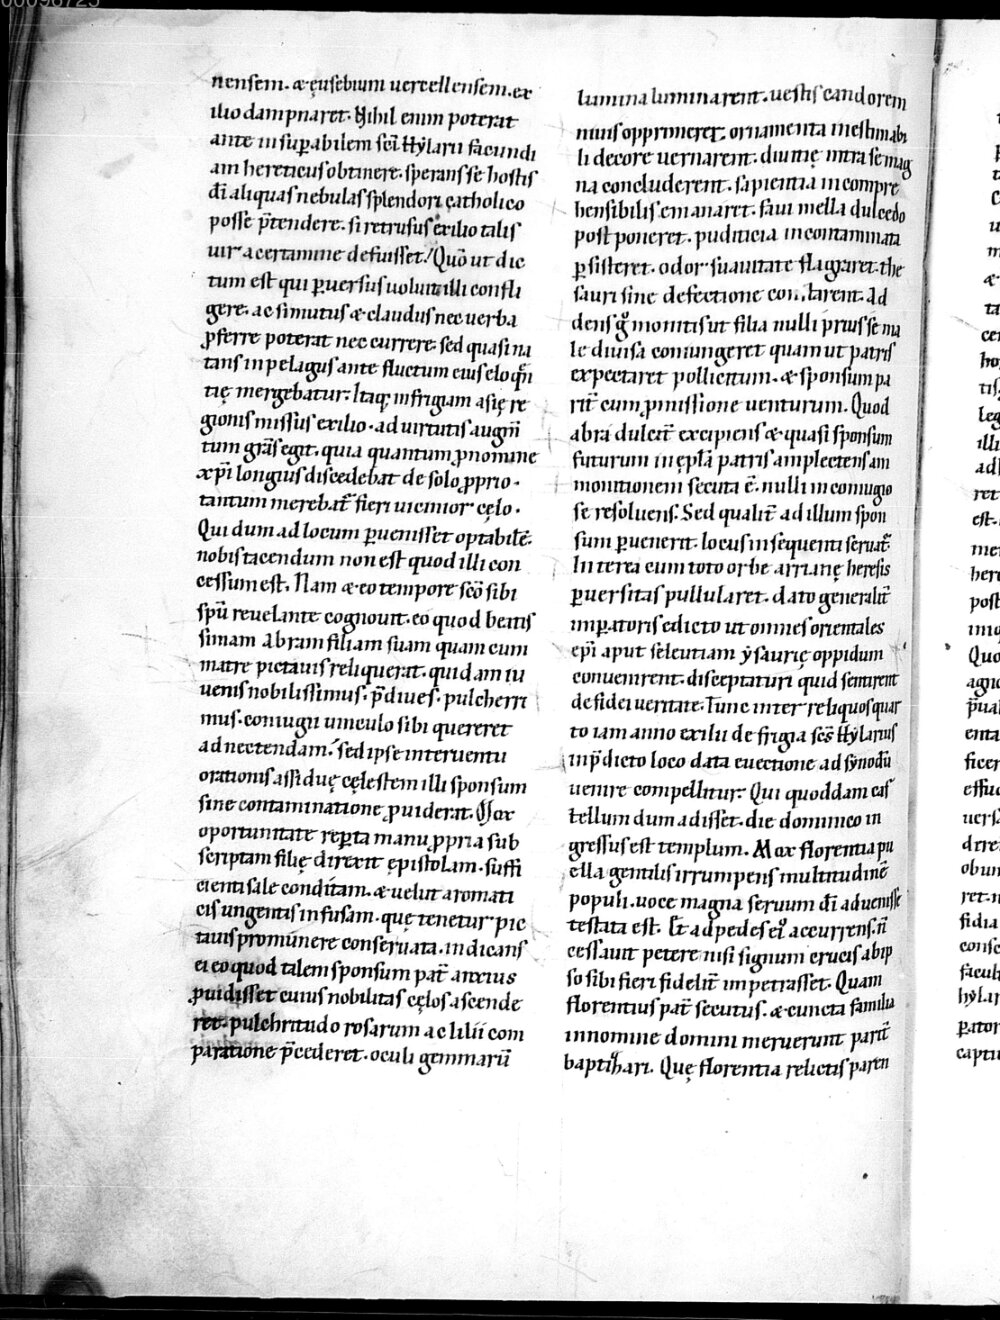 00096725
nensem. & eusebium uercellensem. ex
ilio dampnaret. Nihil enim poterat
ante insuꝑabilem sc̄i hẏlarii facundi
am hereticus obtinere. sperans se hostis
dī aliquas nebulas splendori catholico
posse p̄tendere. si retrusus exilio talis
uir a certamine defuisset. Quō ut dic
tum est qui ꝑuersus uoluit illi confli
gere. ac si mutus & claudus nec uerba
ꝓferre poterat nec currere. sed quasi na
tans in pelagus ante fluctum eius eloq̄n
tię mergebatur. Itaq; in frigiam asię re
gionis missus exilio. ad uirtutis augm̄
tum grās egit. quia quantum ꝓ nomine
xp̄i longius discedebat de solo ꝓprio.
tantum merebat̄ fieri uicinior cęlo.
Qui dum ad locum ꝑuenisset optabilē.
nobis tacendum non est quod illi con
cessum est. Nam & eo tempore scō sibi
spū reuelante cognouit. eo quod beatis
simam abram filiam suam quam cum
matre pictauis reliquerat. quidam iu
uenis nobilissimus. p̄diues. pulcherri
mus. coniugii uinculo sibi quereret
adnectendam. sed ipse interuentu
orationis assiduę cęlestem illi sponsum
sine contaminatione ꝓuiderat. Mox
oportunitate reꝑta manu ꝓpria sub
scriptam filię direxit epistolam. suffi
cienti sale conditam. & uelut aromati
cis ungentis infusam. quę tenetur pic
tauis pro munere conseruata. indicans
ei eo quod talem sponsum pat̄ artius
ꝓuidisset cuius nobilitas cęlos ascende
ret. pulchritudo rosarum ac lilii com
paratione p̄cederet. oculi gemmarū
lumina luminarent. uestis candorem
niuis opprimeret. ornamenta inestimabi
li decore uernarent. diuitię intra se mag
na concluderent. sapientia incompre
hensibilis emanaret. faui mella dulcedo
postponeret. pudicicia incontaminata
ꝑsisteret. odor suauitate flagraret. the
sauri sine defectione constarent. Ad
dens g̊ monitis ut filia nulli prius se nu
le diuisa coniungeret quam ut patris
expectaret pollicitum. & sponsum pa
rit̄ cum ꝓmissione uenturum. Quod
abra dulcit̄ excipiens & quasi sponsum
futurum in epl̄a patris amplectens am
monitionem secuta ē. nulli in coniugio
se resoluens. Sed qualit̄ ad illum spon
sum ꝑuenerit. locus insequenti seruat̄.
Interea cum toto orbe arrianę heresis
ꝑuersitas pullularet. dato generalit̄
imꝑatoris edicto ut omnes orientales
ep̄i aput seleutiam ẏsaurię oppidum
conuenirent. disceptaturi quid sentirent
de fidei ueritate. Tunc inter reliquos quar
to iam anno exilii de frigia scs̄ hẏlarius
in p̄dicto loco data euectione ad sẏnodū
uenire compellitur. Qui quoddam cas
tellum dum adisset. die dominico in
gressus est templum. Mox florentia pu
ella gentilis irrumpens multitudinē
populi. uoce magna seruum dī aduenisse
testata est. Et ad pedes ei᷒ accurrens. n̄
cessauit petere nisi signum crucis ab ip
so sibi fieri fidelit̄ impetrasset. Quam
florentius pat̄ secutus. & cuncta familia
in nomine domini meruerunt parit̄
baptizari. Quę florentia relictis paren